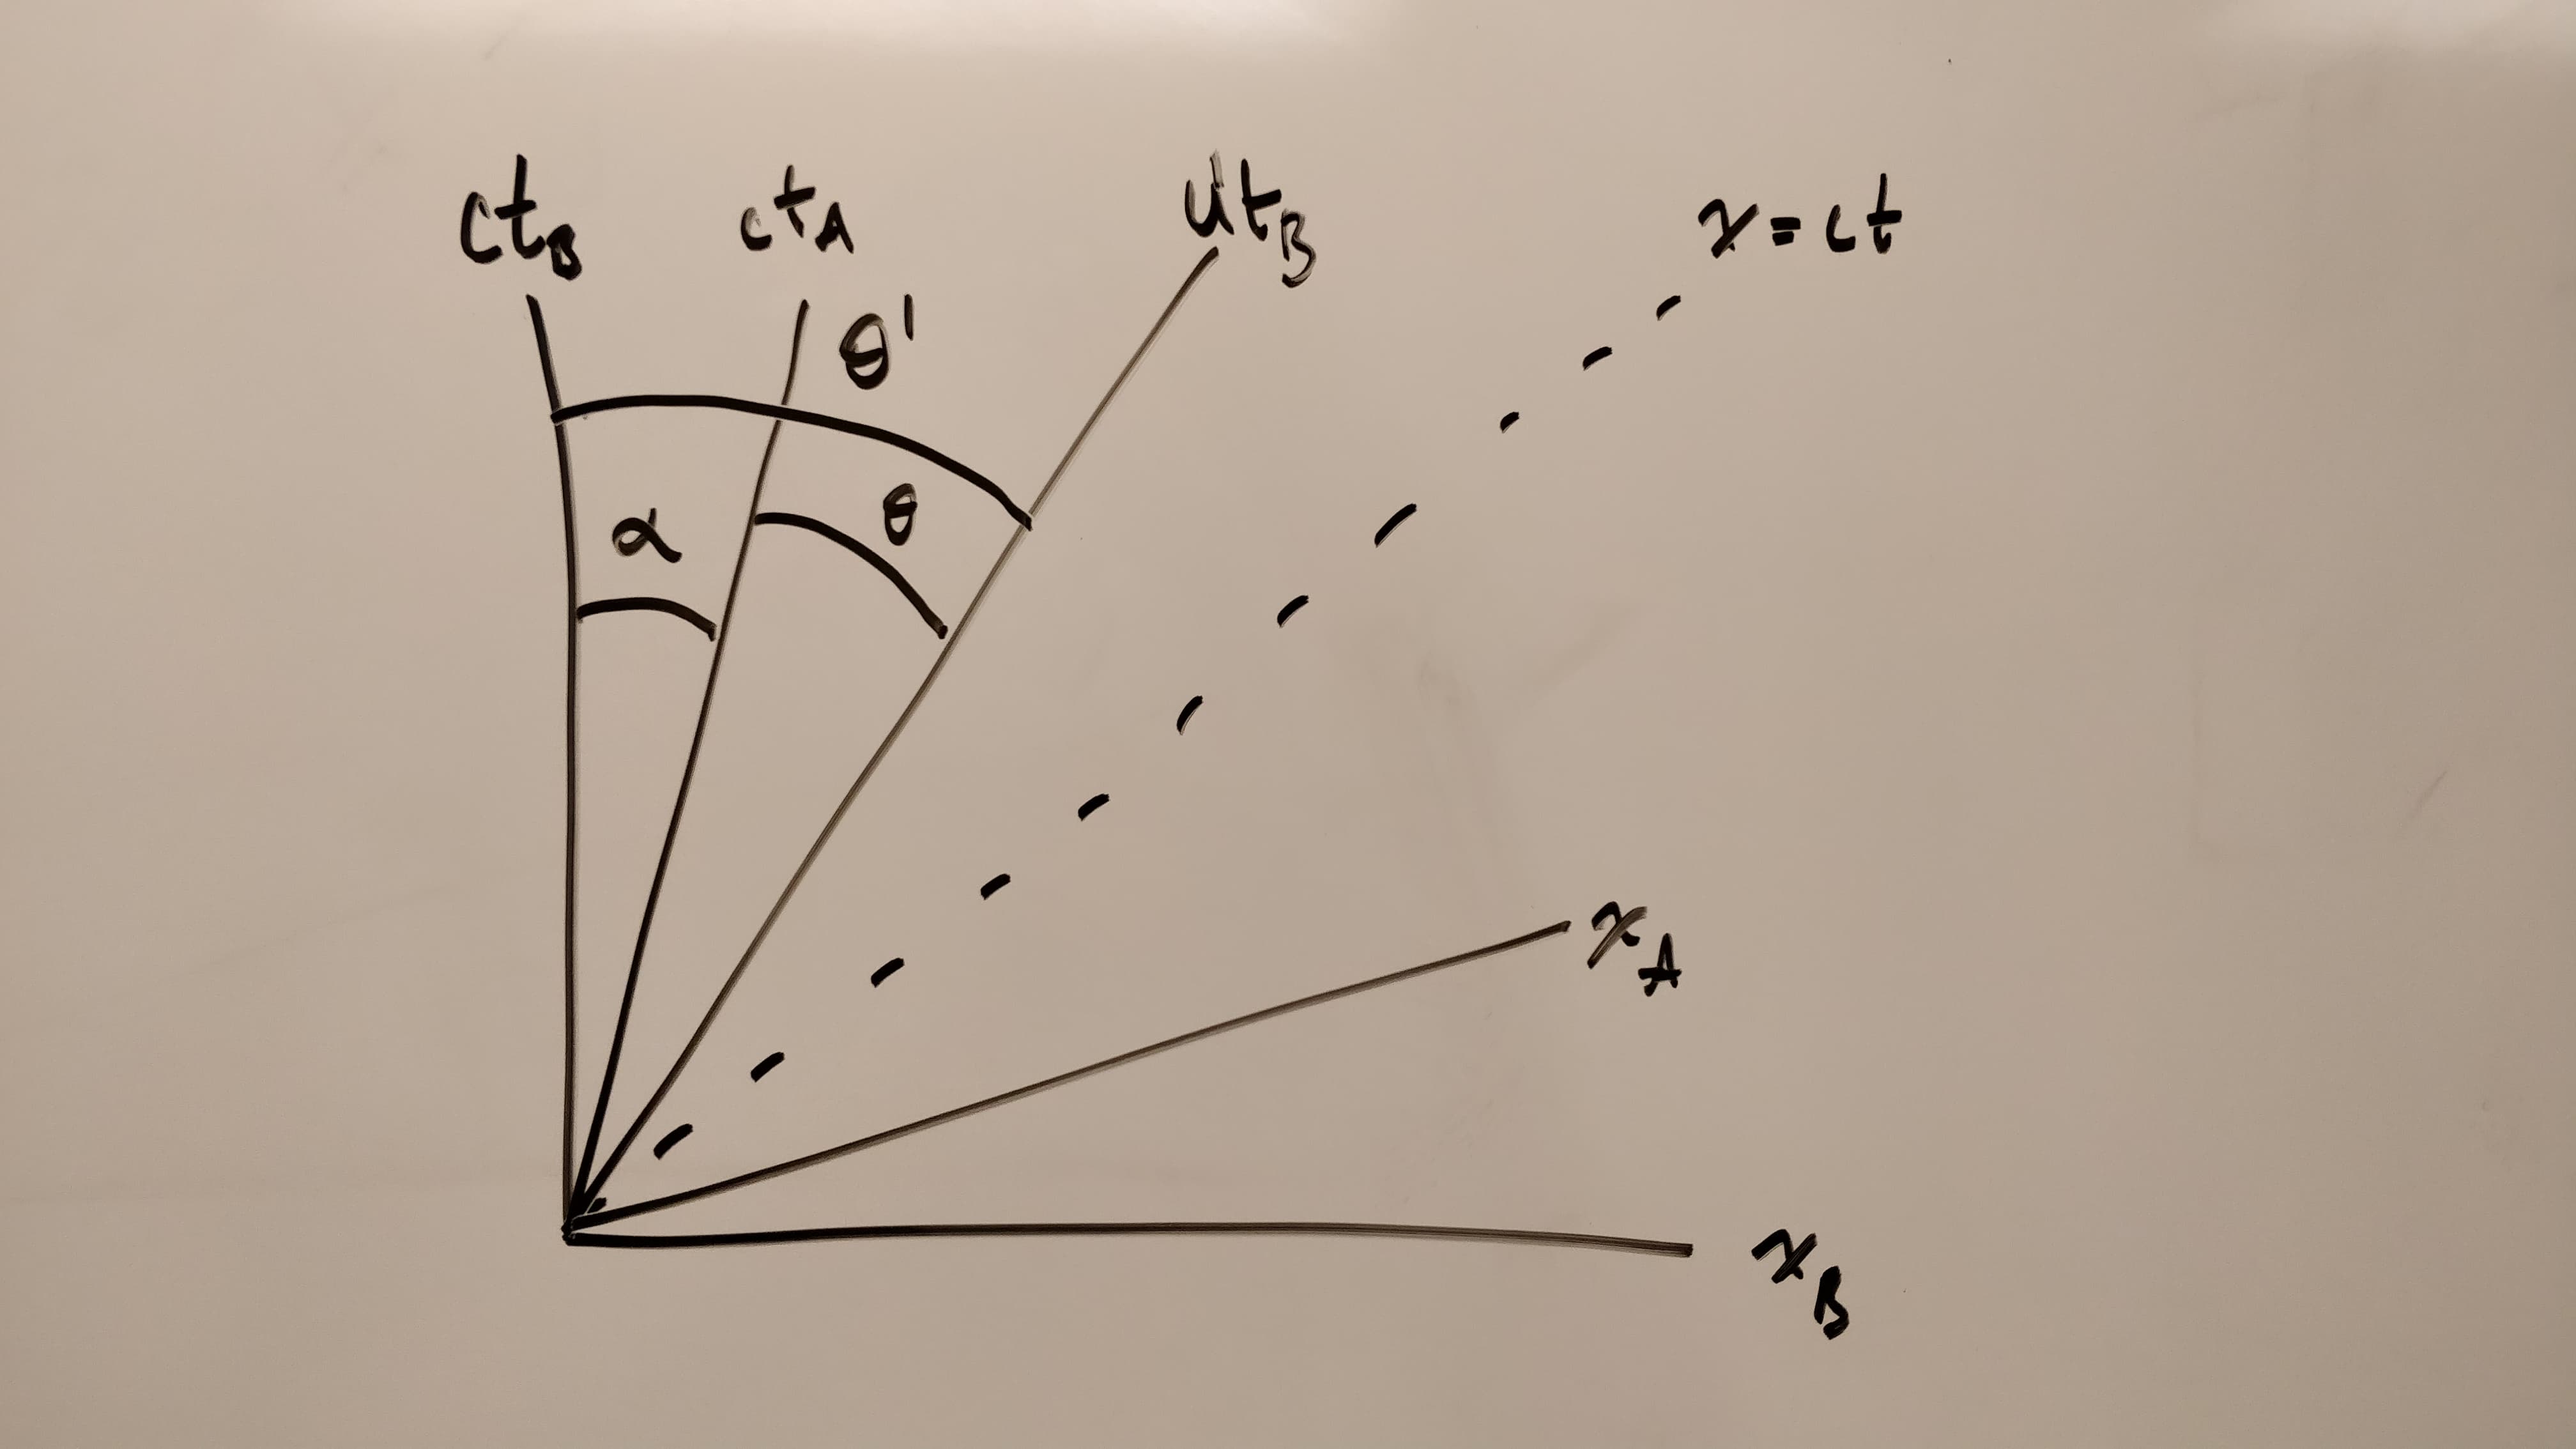 ct_B
ct_A
u't_B
x = ct
θ'
θ
α
x_A
x_B